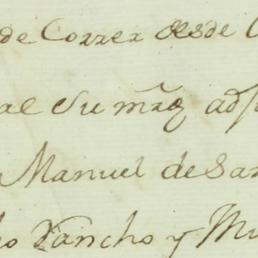 de Correr desde
al su mrẓ
Manuel de San
Sancho y Mu